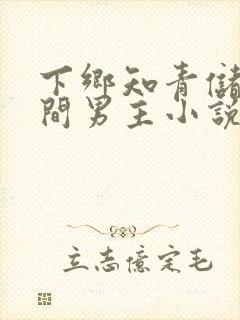 下鄉知青儲
間男主小説
立志億定毛